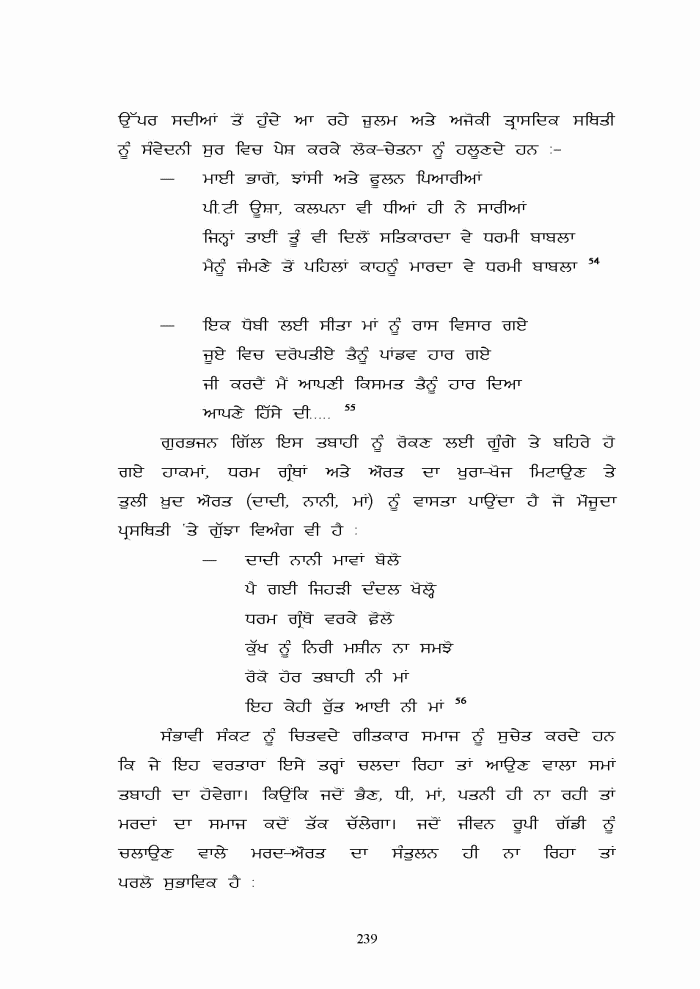 ਉੱਪਰ ਸਦੀਆਂ ਤੋਂ ਹੁੰਦੇ ਆ ਰਹੇ ਜ਼ੁਲਮ ਅਤੇ ਅਜੋਕੀ ਤ੍ਰਾਸਦਿਕ ਸਥਿਤੀ
ਨੂੰ ਸੰਵੇਦਨੀ ਸੁਰ ਵਿਚ ਪੇਸ਼ ਕਰਕੇ ਲੋਕ-ਚੇਤਨਾ ਨੂੰ ਹਲੂਣਦੇ ਹਨ :-
— ਮਾਈ ਭਾਗੋ, ਝਾਂਸੀ ਅਤੇ ਫੂਲਨ ਪਿਆਰੀਆਂ
ਪੀ.ਟੀ ਊਸ਼ਾ, ਕਲਪਨਾ ਵੀ ਧੀਆਂ ਹੀ ਨੇ ਸਾਰੀਆਂ
ਜਿਨ੍ਹਾਂ ਤਾਈਂ ਤੂੰ ਵੀ ਦਿਲੋਂ ਸਤਿਕਾਰਦਾ ਵੇ ਧਰਮੀ ਬਾਬਲਾ
ਮੈਨੂੰ ਜੰਮਣੇ ਤੋਂ ਪਹਿਲਾਂ ਕਾਹਨੂੰ ਮਾਰਦਾ ਵੇ ਧਰਮੀ ਬਾਬਲਾ 54
— ਇਕ ਧੋਬੀ ਲਈ ਸੀਤਾ ਮਾਂ ਨੂੰ ਰਾਸ ਵਿਸਾਰ ਗਏ
ਜੂਏ ਵਿਚ ਦਰੋਪਤੀਏ ਤੈਨੂੰ ਪਾਂਡਵ ਹਾਰ ਗਏ
ਜੀ ਕਰਦੈਂ ਮੈਂ ਆਪਣੀ ਕਿਸਮਤ ਤੈਨੂੰ ਹਾਰ ਦਿਆ
ਆਪਣੇ ਹਿੱਸੇ ਦੀ..... 55
ਗੁਰਭਜਨ ਗਿੱਲ ਇਸ ਤਬਾਹੀ ਨੂੰ ਰੋਕਣ ਲਈ ਗੂੰਗੇ ਤੇ ਬਹਿਰੇ ਹੋ
ਗਏ ਹਾਕਮਾਂ, ਧਰਮ ਗ੍ਰੰਥਾਂ ਅਤੇ ਔਰਤ ਦਾ ਖੁਰਾ-ਖੋਜ ਮਿਟਾਉਣ ਤੇ
ਤੁਲੀ ਖ਼ੁਦ ਔਰਤ (ਦਾਦੀ, ਨਾਨੀ, ਮਾਂ) ਨੂੰ ਵਾਸਤਾ ਪਾਉਂਦਾ ਹੈ ਜੋ ਮੌਜੂਦਾ
ਪ੍ਰਸਥਿਤੀ 'ਤੇ ਗੁੱਝਾ ਵਿਅੰਗ ਵੀ ਹੈ :
— ਦਾਦੀ ਨਾਨੀ ਮਾਵਾਂ ਬੋਲੋ
ਪੈ ਗਈ ਜਿਹੜੀ ਦੰਦਲ ਖੋਲ੍ਹੋ
ਧਰਮ ਗ੍ਰੰਥੋ ਵਰਕੇ ਫ਼ੋਲੋ
ਕੁੱਖ ਨੂੰ ਨਿਰੀ ਮਸ਼ੀਨ ਨਾ ਸਮਝੋ
ਰੋਕੋ ਹੋਰ ਤਬਾਹੀ ਨੀ ਮਾਂ
ਇਹ ਕੇਹੀ ਰੁੱਤ ਆਈ ਨੀ ਮਾਂ 56
ਸੰਭਾਵੀ ਸੰਕਟ ਨੂੰ ਚਿਤਵਦੇ ਗੀਤਕਾਰ ਸਮਾਜ ਨੂੰ ਸੁਚੇਤ ਕਰਦੇ ਹਨ
ਕਿ ਜੇ ਇਹ ਵਰਤਾਰਾ ਇਸੇ ਤਰ੍ਹਾਂ ਚਲਦਾ ਰਿਹਾ ਤਾਂ ਆਉਣ ਵਾਲਾ ਸਮਾਂ
ਤਬਾਹੀ ਦਾ ਹੋਵੇਗਾ। ਕਿਉਂਕਿ ਜਦੋਂ ਭੈਣ, ਧੀ, ਮਾਂ, ਪਤਨੀ ਹੀ ਨਾ ਰਹੀ ਤਾਂ
ਮਰਦਾਂ ਦਾ ਸਮਾਜ ਕਦੋਂ ਤੱਕ ਚੱਲੇਗਾ। ਜਦੋਂ ਜੀਵਨ ਰੂਪੀ ਗੱਡੀ ਨੂੰ
ਚਲਾਉਣ ਵਾਲੇ ਮਰਦ-ਔਰਤ ਦਾ ਸੰਤੁਲਨ ਹੀ ਨਾ ਰਿਹਾ ਤਾਂ
ਪਰਲੋ ਸੁਭਾਵਿਕ ਹੈ :
239